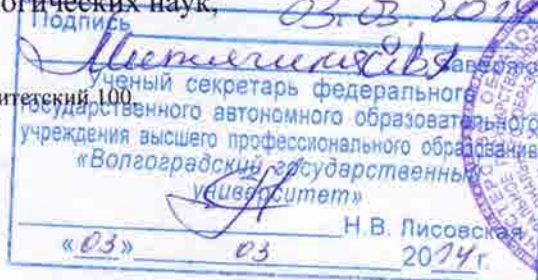 логических наук,
03.03.2014
Подпись
заверяю
Ученый секретарь федерального
итетский 100,
государственного автономного образовательного
учреждения высшего профессионального образования
«Волгоградский государственный
университет»
Н.В. Лисовская
«03» 03 2014 г.